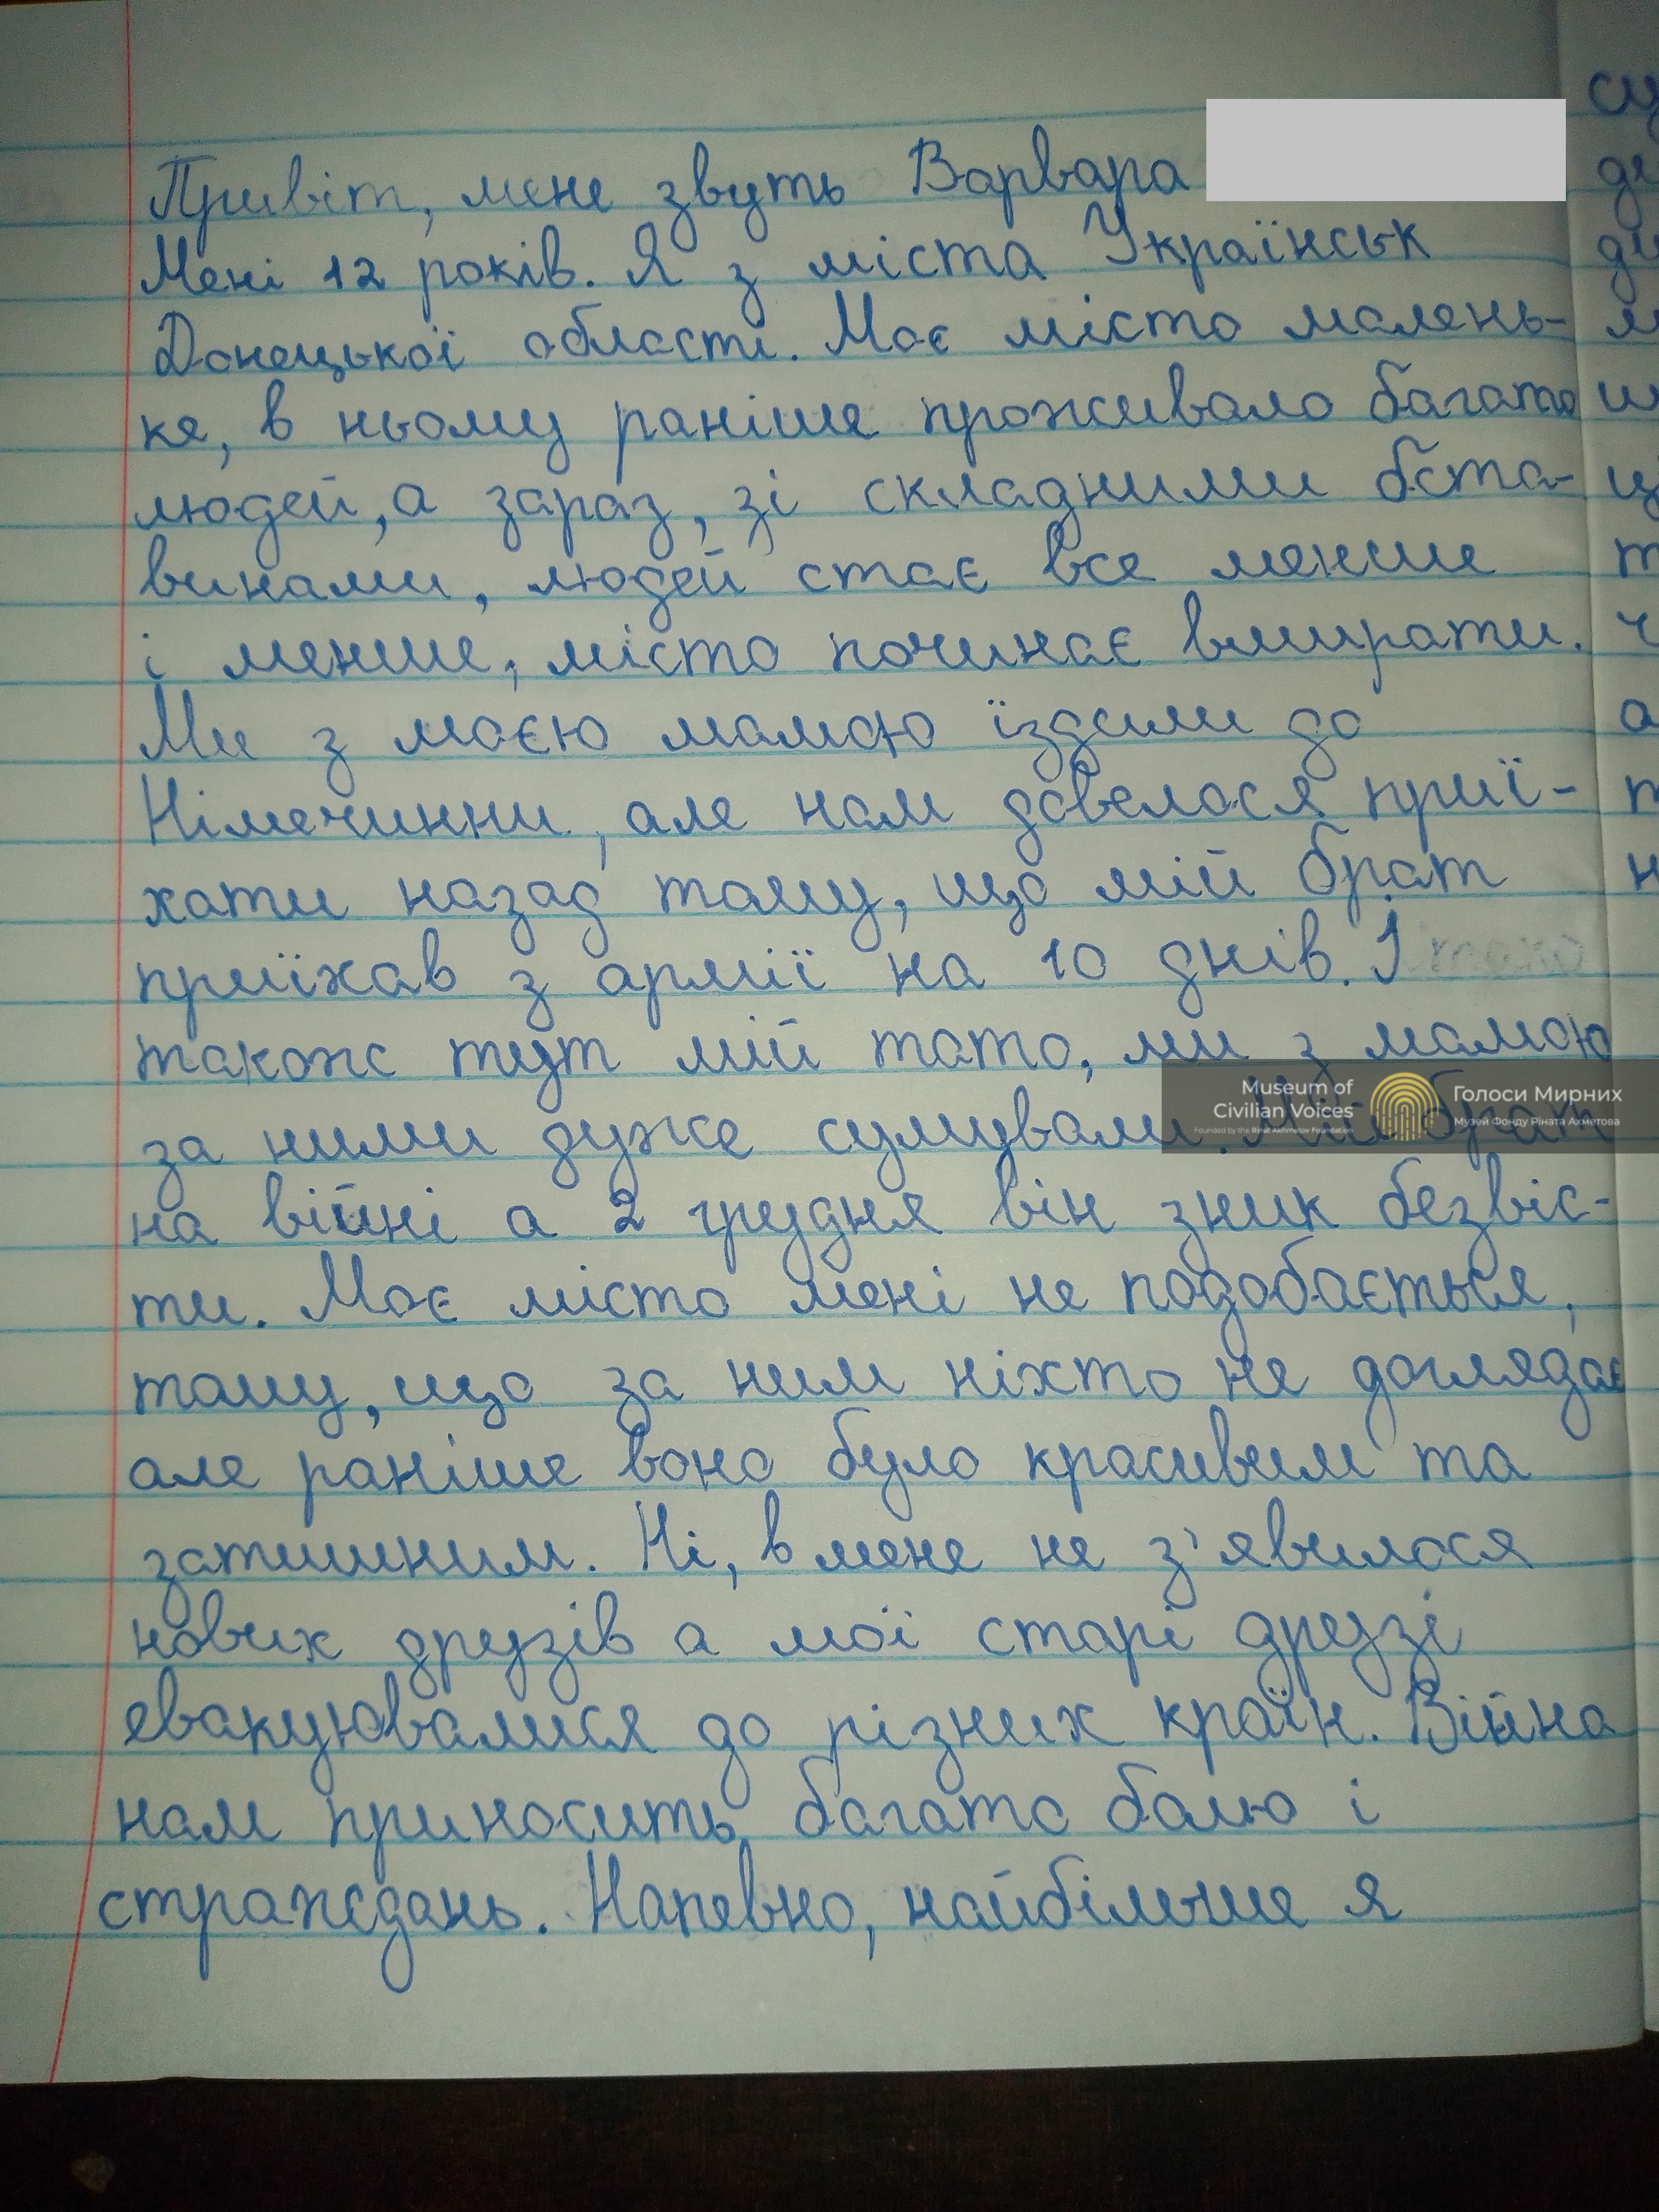 Привіт, мене звуть Варвара
Мені 12 років. Я з міста Українськ
Донецької області. Моє місто малень-
ке, в ньому раніше проживало багато
людей, а зараз, зі складними обста-
винами, людей стає все менше
і менше, місто починає вмирати.
Ми з моєю мамою їздили до
Німечинни, але нам довелося приї-
хати назад тому, що мій брат
приїхав з армії на 10 днів. І
також тут мій тато, ми з мамою
за ними дуже сумували. Мій брат
на війні а 2 грудня він зник безвіс-
ти. Моє місто мені не подобається,
тому, що за ним ніхто не доглядає
але раніше воно було красивим та
затишним. Ні, в мене не з'явилося
нових друзів а мої старі друзі
евакуювалися до різних країн. Війна
нам приносить багато болю і
страждань. Напевно, найбільше я
Museum of
Civilian Voices
Founded by the Rinat Akhmetov Foundation
Голоси Мирних
Музей Фонду Ріната Ахметова